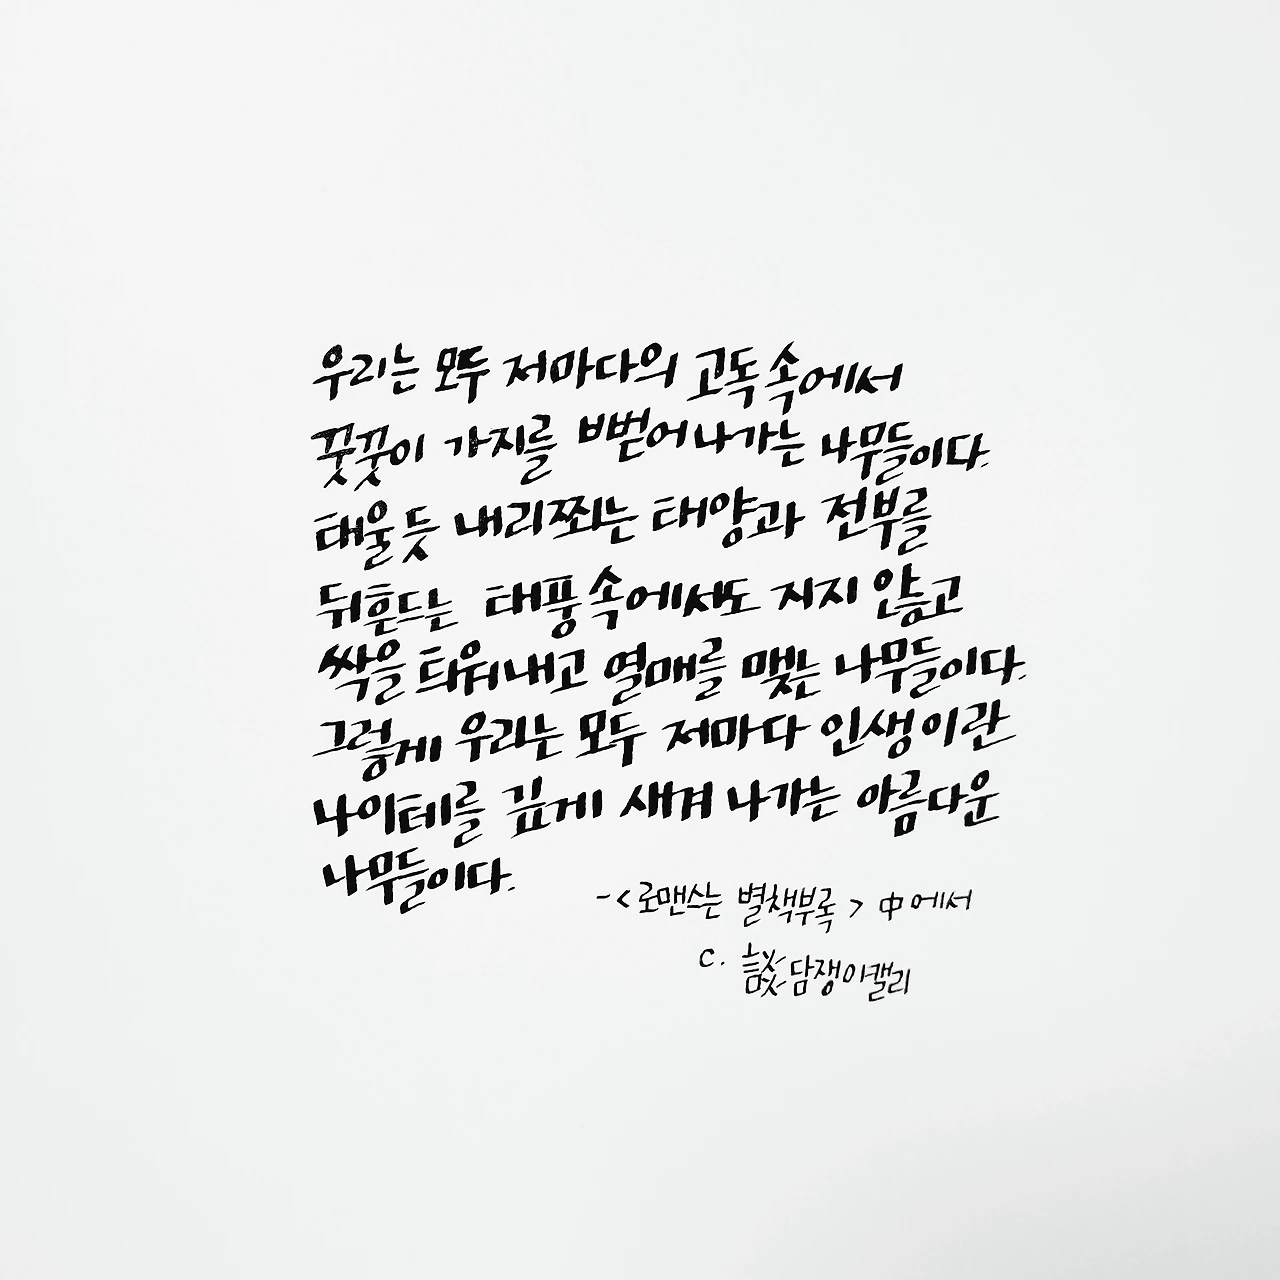 우리는 모두 저마다의 고독 속에서
꿋꿋이 가지를 뻗어나가는 나무들이다.
태울듯 내리쬐는 태양과 전부를
뒤흔드는 태풍 속에서도 지지 않고
싹을 틔워내고 열매를 맺는 나무들이다.
그렇게 우리는 모두 저마다 인생이란
나이테를 깊게 새겨 나가는 아름다운
나무들이다.
-<로맨스는 별책부록> 中에서
c. 談담쟁이캘리